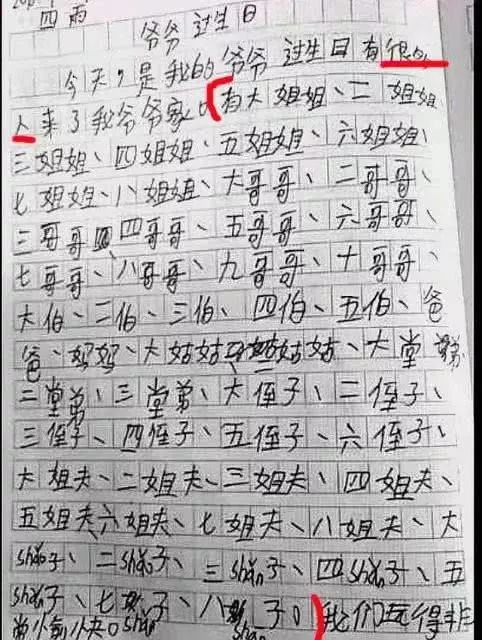 四雨
爷爷过生日
今天,是我的爷爷过生日有很多
人来了我爷爷家。有大姐姐、二姐姐
三姐姐、四姐姐、五姐姐、六姐姐、
七姐姐、八姐姐、大哥哥、二哥哥、
三哥哥四哥哥、五哥哥、六哥哥、
七哥哥、八哥哥、九哥哥、十哥哥、
大伯、二伯、三伯、四伯、五伯、爸
爸、妈妈、大姑姑、二姑姑、大堂弟
二堂弟、三堂弟、大侄子、二侄子、
三侄子、四侄子、五侄子、六侄子、
大姐夫、二姐夫、三姐夫、四姐夫、
五姐夫、六姐夫、七姐夫、八姐夫、大
shǎo子、二shǎo子、三shǎo子、四shǎo子、五
shǎo子、七子、八子。我们玩得非
常